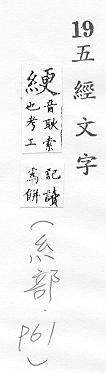 19五經文字
綆
音耿索
也考工
記讀
爲餅
(糸部·P61)